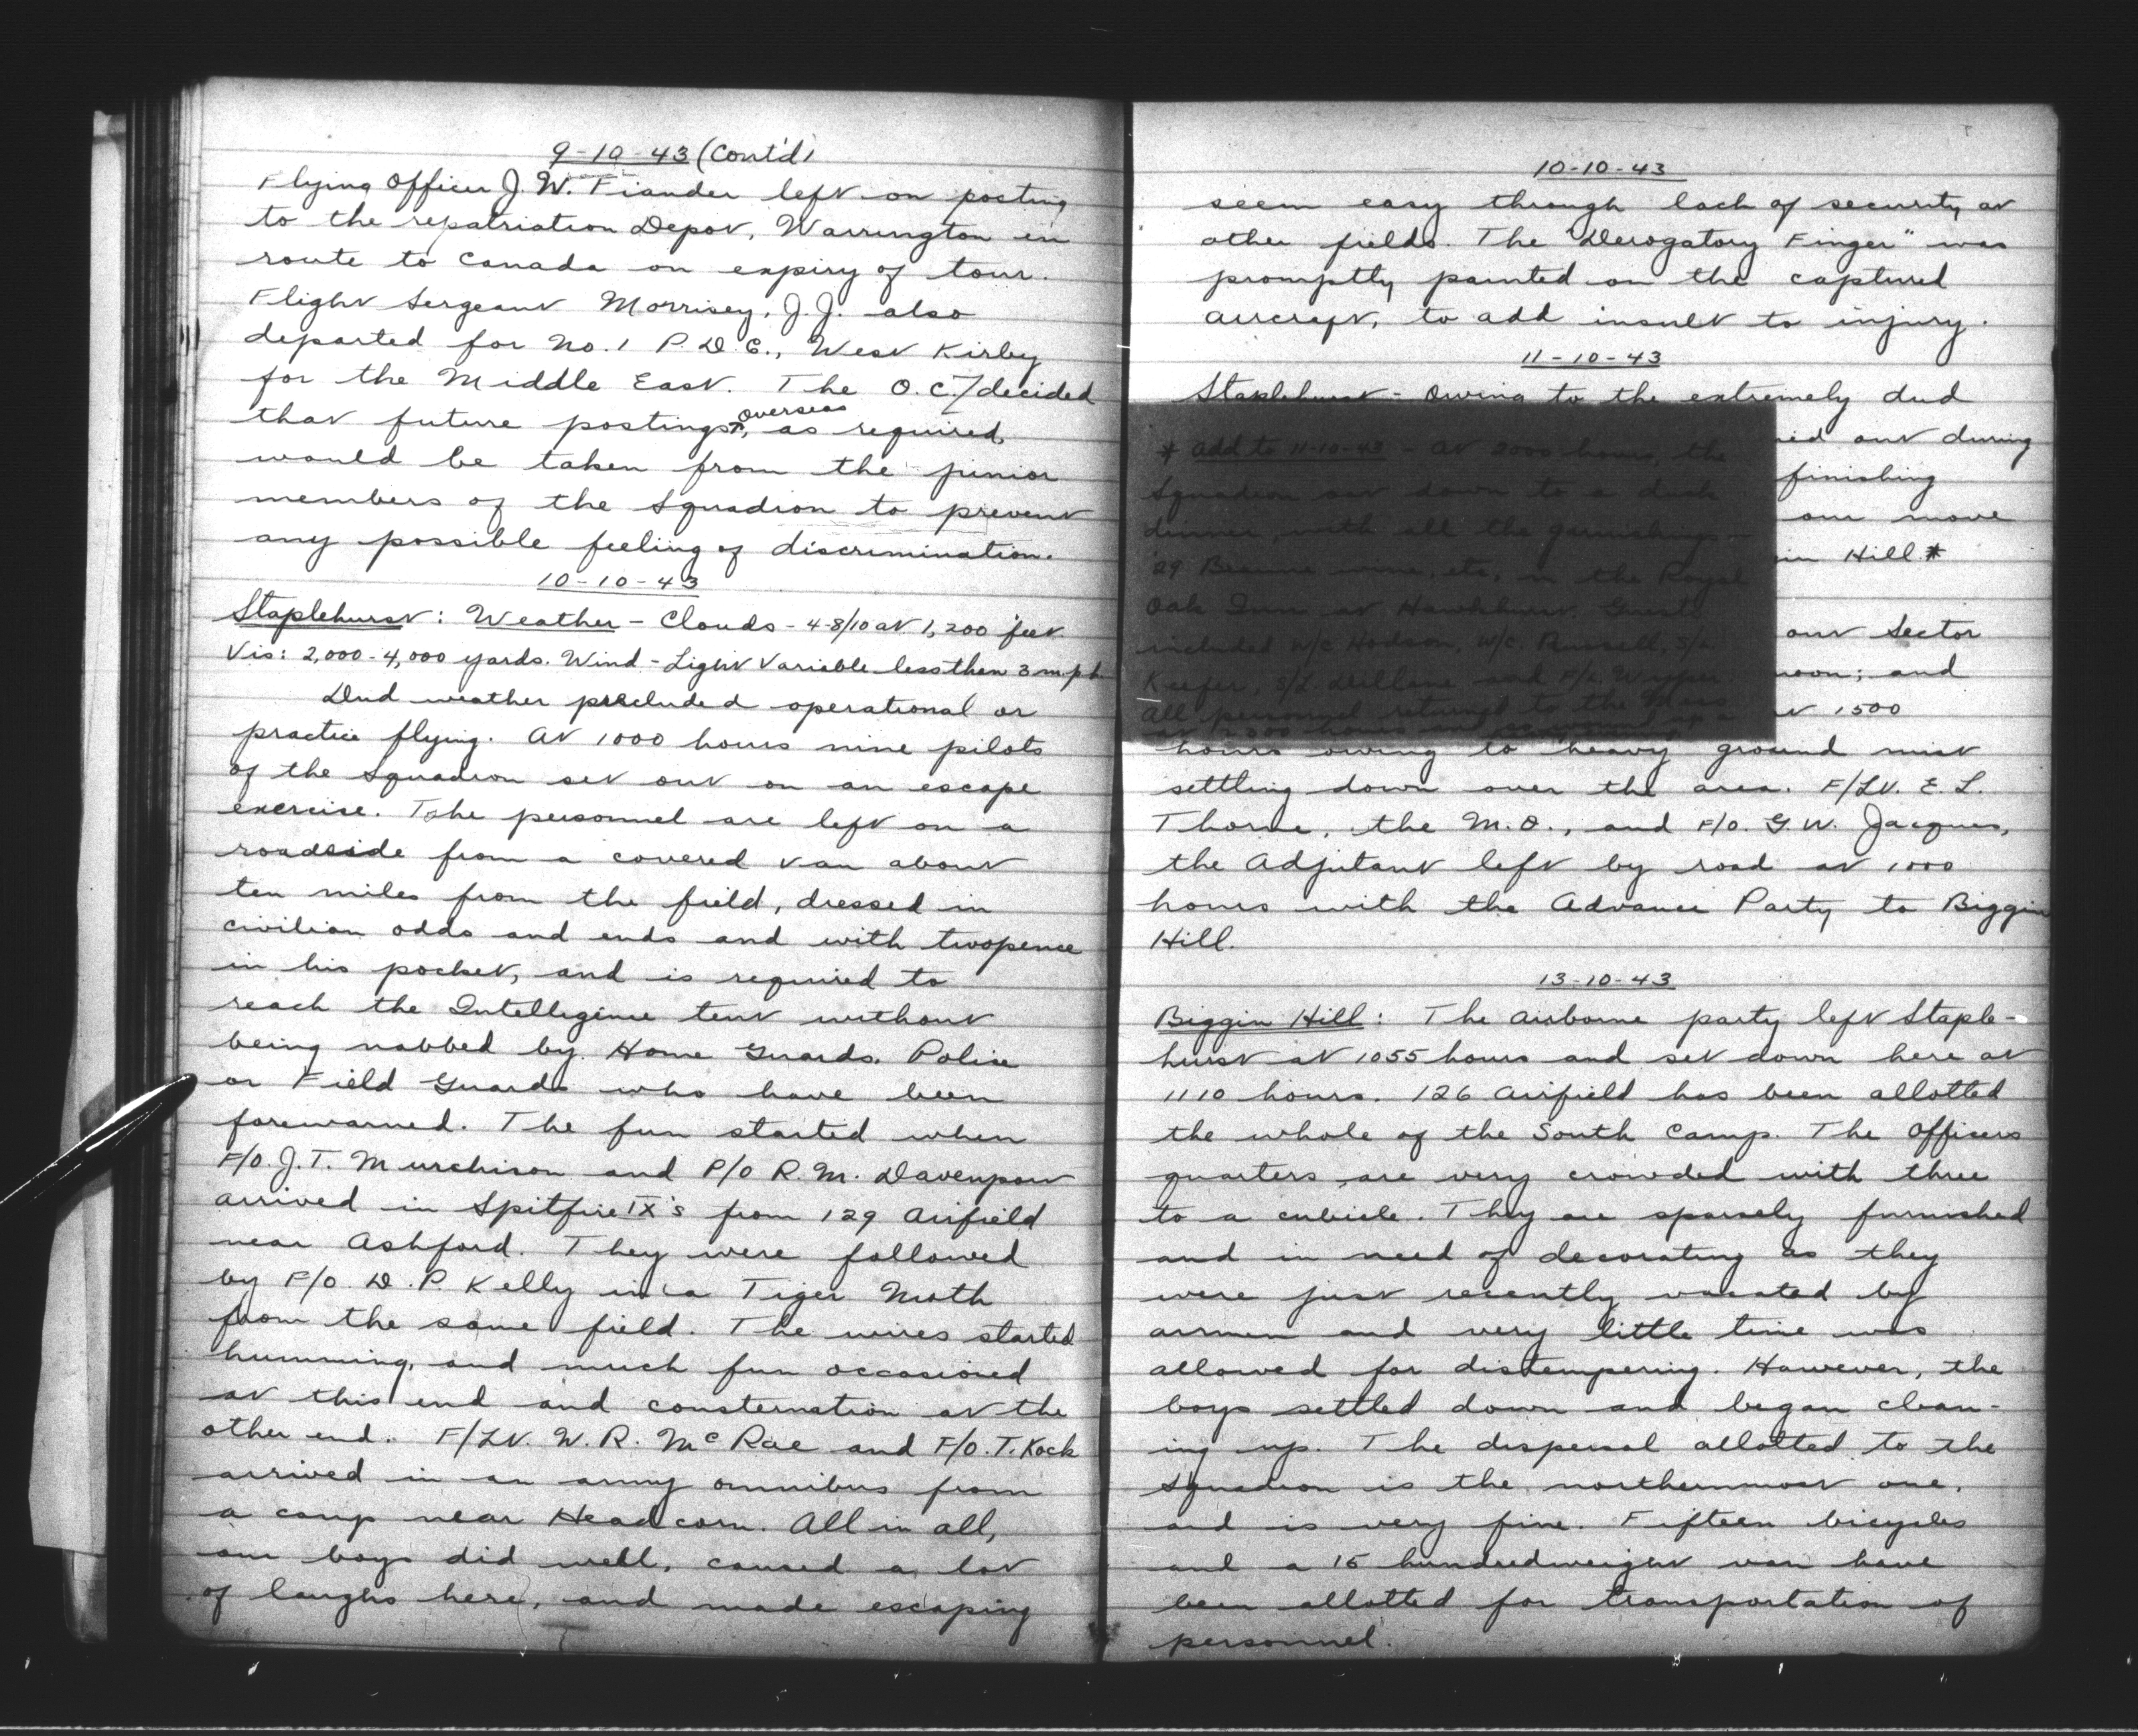 9-10-43 (Cont'd)
Flying Officer J. W. Fiander left on posting
to the repatriation Depot, Warrington en
route to Canada on expiry of tour.
Flight Sergeant Morrisey, J.J. also
departed for No. 1 P.D.C., West Kirby
for the Middle East. The O.C. decided
that future postings overseas, as required,
would be taken from the junior
members of the Squadron to prevent
any possible feeling of discrimination.
10-10-43
Staplehurst: Weather - Clouds - 4-8/10 at 1,200 feet
Vis: 2,000-4,000 yards. Wind - Light Variable less then 3 mph
Dud weather precluded operational or
practice flying. At 1000 hours nine pilots
of the squadron set out on an escape
exercise. The personnel are left on a
roadside from a covered van about
ten miles from the field, dressed in
civilian odds and ends and with twopence
in his pocket, and is required to
reach the Intelligence tent without
being nabbed by Home Guards, Police
or Field Guards who have been
forewarned. The fun started when
F/O. J.T. Murchison and P/O R.M. Davenport
arrived in Spitfire IX's from 129 Airfield
near Ashford. They were followed
by F/O. D.P. Kelly in a Tiger Moth
from the same field. The wires started
humming, and much fun occasioned
at this end and consternation at the
other end. F/Lt. W.R. McRae and F/O. T. Kock
arrived in an army omnibus from
a camp near Headcorn. All in all,
our boys did well, caused a lot
of laughs here, and made escaping
10-10-43
seem easy through lack of security at
other fields. The "Derogatory Finger" was
promptly painted on the captured
aircraft, to add insult to injury.
11-10-43
Staplehurst - Owing to the extremely dud
out during
finishing
our move
Hill *
* Add to 11-10-43 - At 2000 hours, the
Squadron sat down to a duck
dinner, with all the garnishings -
'29 Beaune wine, etc, in the Royal
Oak Inn at Hawkhurst. Guests
included W/C Hodson, W/C. Russell, S/L
Keefer, S/L and F/L
All personnel returned to the Mess
our Sector
noon; and
at 1500
hours owing to heavy ground mist
settling down over the area. F/Lt. E.L.
Thorne, the M.O., and F/O. G.W. Jacques,
the Adjutant left by road at 1000
hours with the Advance Party to Biggin
Hill.
13-10-43
Biggin Hill: The airborne party left Staple-
hurst at 1055 hours and set down here at
1110 hours. 126 Airfield has been allotted
the whole of the South Camp. The Officers
quarters are very crowded with three
to a cubicle. They are sparsely furnished
and in need of decorating as they
were just recently vacated by
airmen and very little time was
allowed for distempering. However, the
boys settled down and began clean-
ing up. The dispersal allotted to the
squadron is the northernmost one,
and is very fine. Fifteen bicycles
and a 15 hundredweight van have
been allotted for transportation of
personnel.